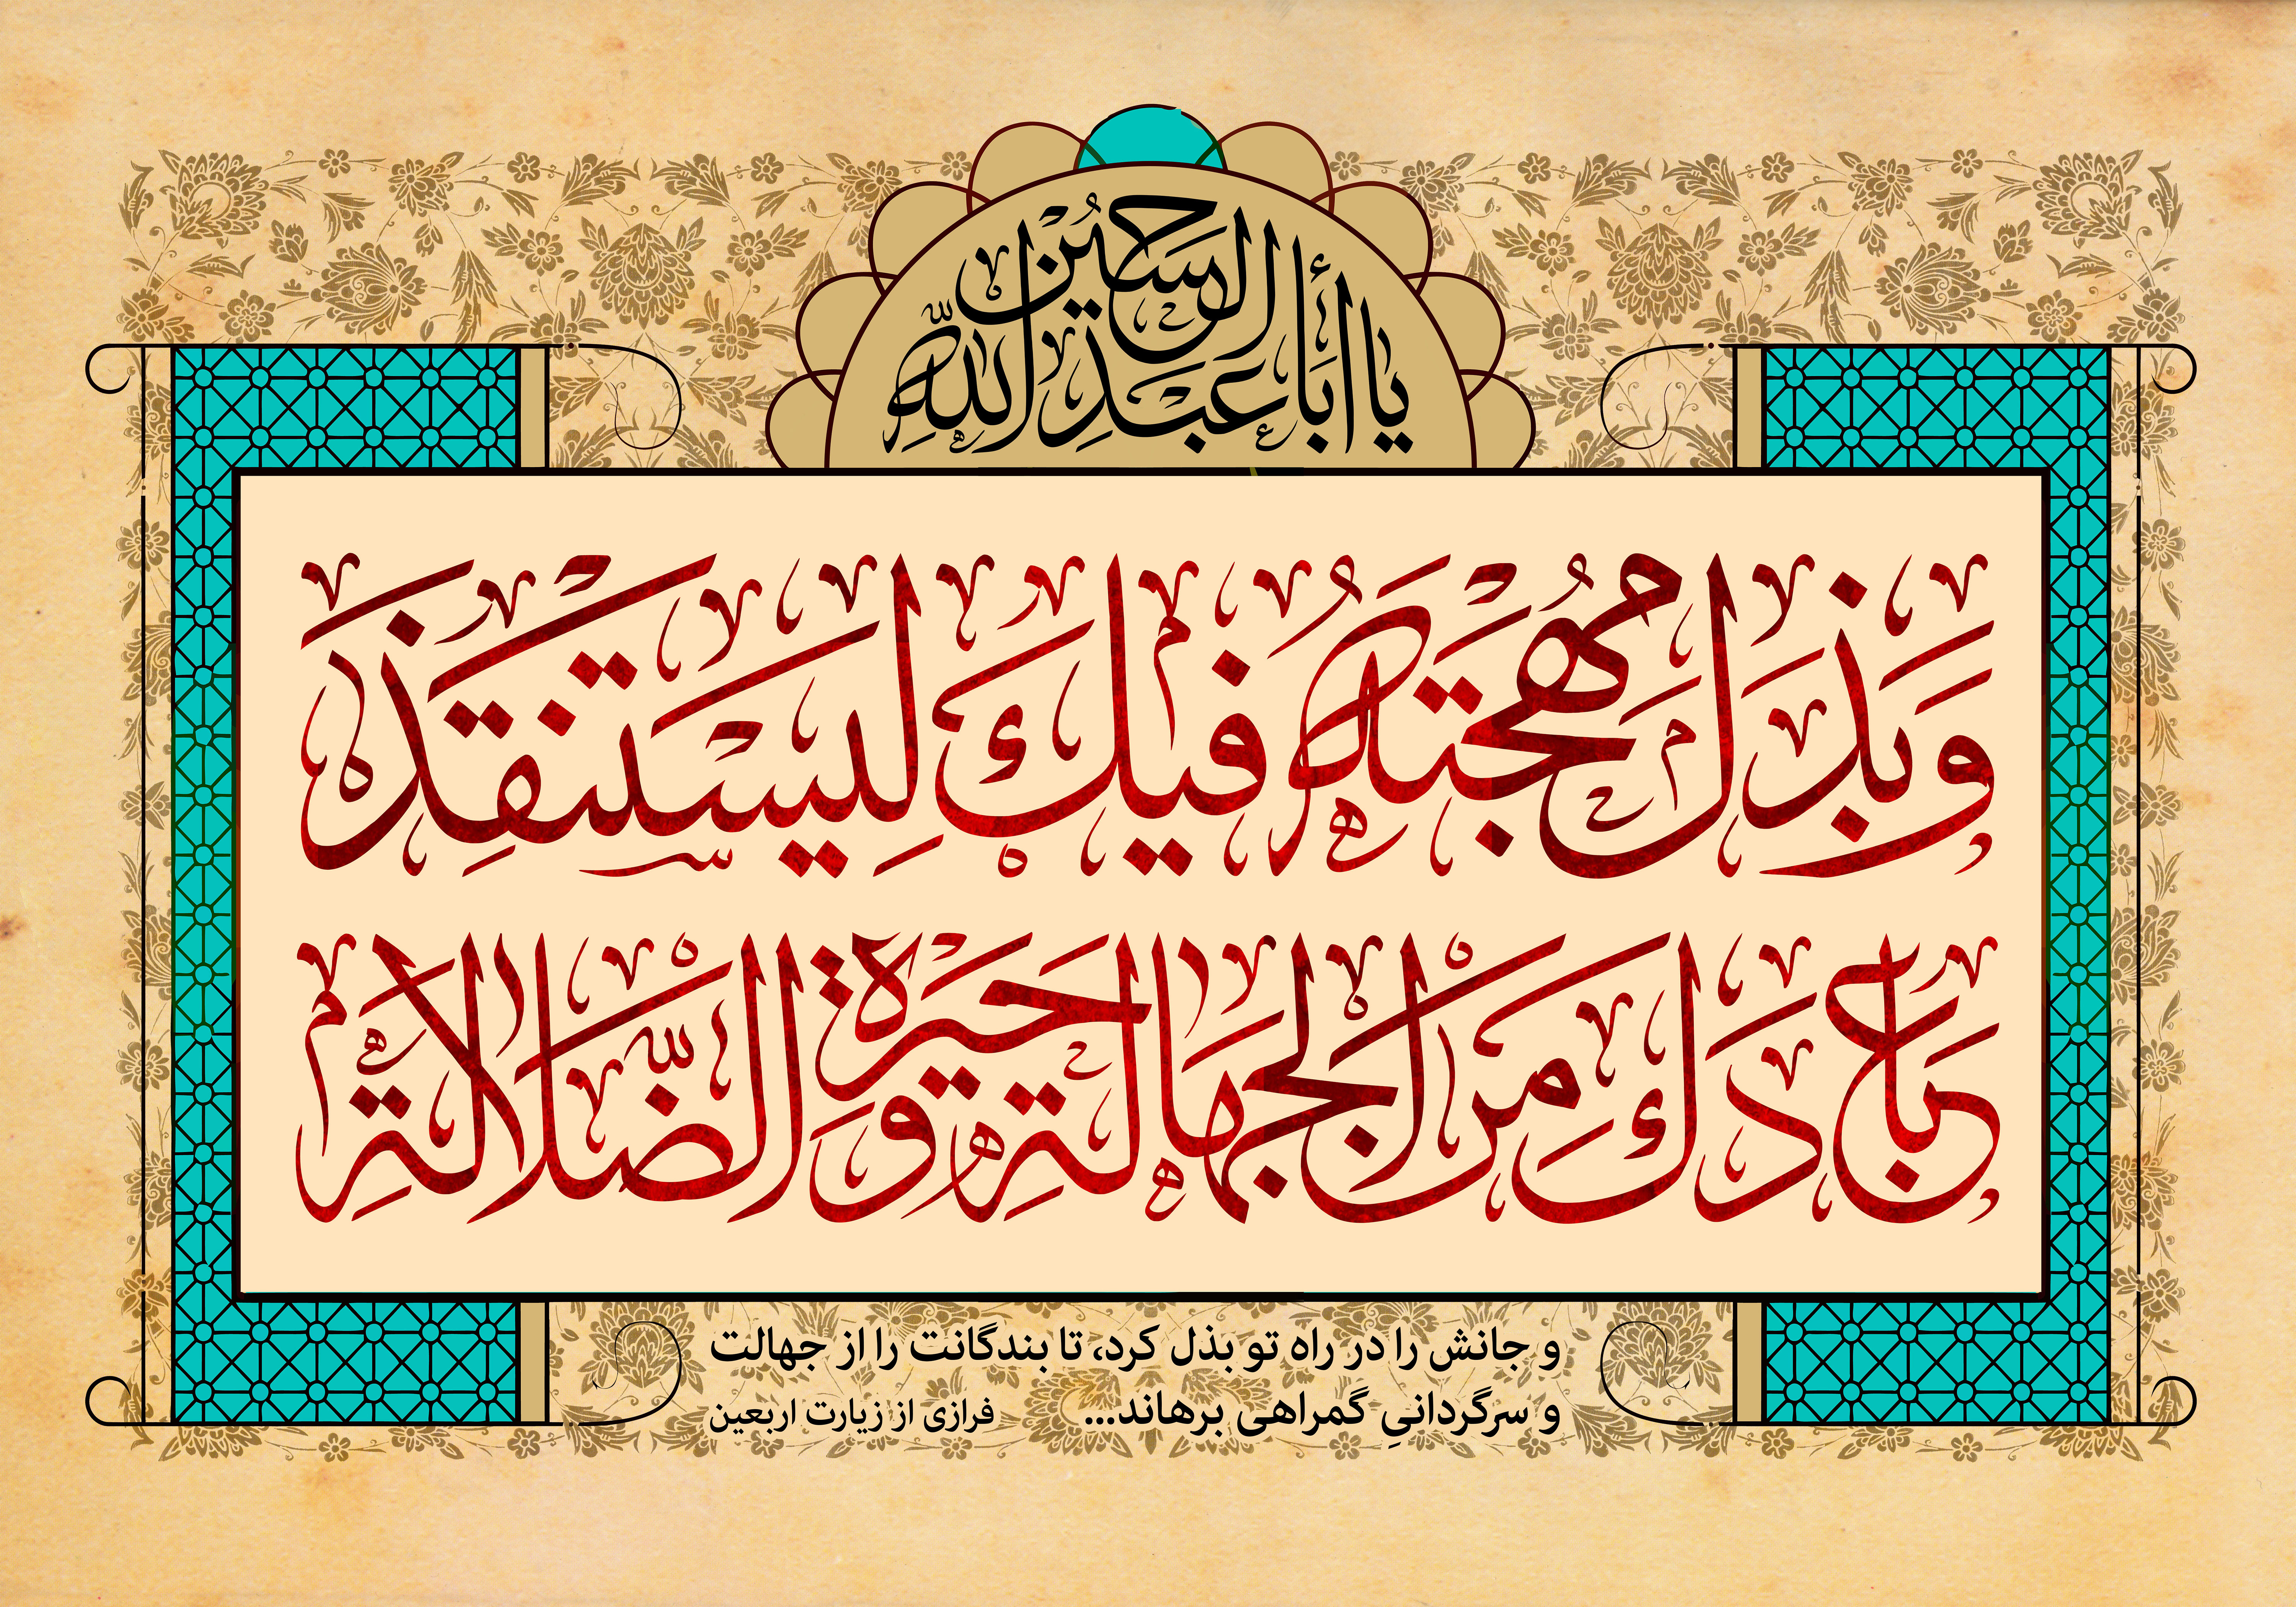 يا أَبا عَبْدِ اللّٰهِ الحُسَيْن
وَبَذَلَ مُهْجَتَهُ فيكَ لِيَسْتَنْقِذَ
عِبادَكَ مِنَ الْجَهالَةِ وَحَيْرَةِ الضَّلالَةِ
و جانش را در راه تو بذل کرد، تا بندگانت را از جهالت
و سرگردانیِ گمراهی برهاند... فرازی از زیارت اربعین